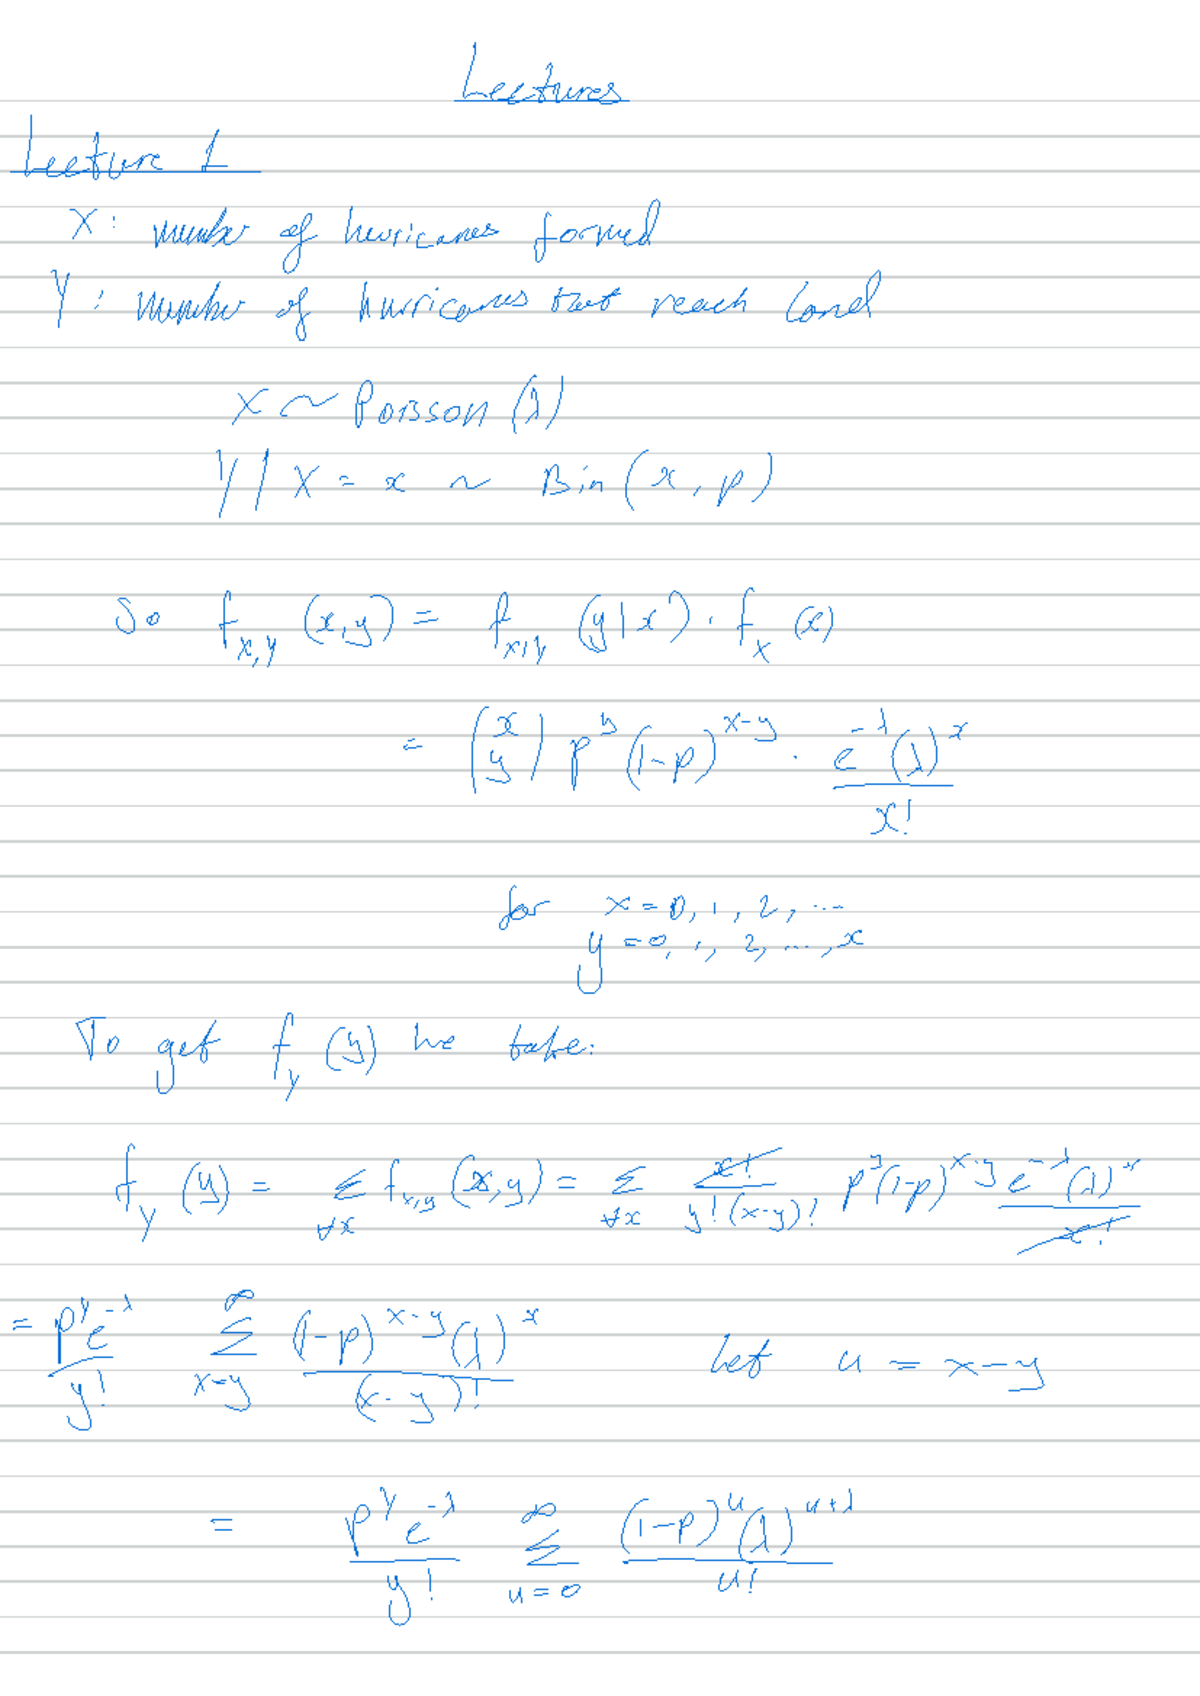 Lectures
Lecture 1
X: number of hurricanes formed
Y: number of hurricanes that reach land
X ~ Poisson (λ)
Y | X = x ~ Bin (x, p)
So f_{X,Y} (x,y) = f_{X|Y} (y|x) · f_X (x)
= \binom{x}{y} p^y (1-p)^{x-y} · \frac{e^{-λ}(λ)^x}{x!}
for x = 0, 1, 2, ...
y = 0, 1, 2, ..., x
To get f_Y (y) we take:
f_Y (y) = \sum_{∀x} f_{X,Y} (x,y) = \sum_{∀x} \frac{x!}{y!(x-y)!} p^y (1-p)^{x-y} \frac{e^{-λ}(λ)^x}{x!}
= \frac{p^y e^{-λ}}{y!} \sum_{x=y}^{∞} \frac{(1-p)^{x-y}(λ)^x}{(x-y)!} Let u = x-y
= \frac{p^y e^{-λ}}{y!} \sum_{u=0}^{∞} \frac{(1-p)^u (λ)^{u+λ}}{u!}